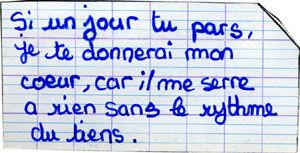 Si un jour tu pars,
je te donnerai mon
coeur, car il me serre
a rien sans le rythme
du tiens.